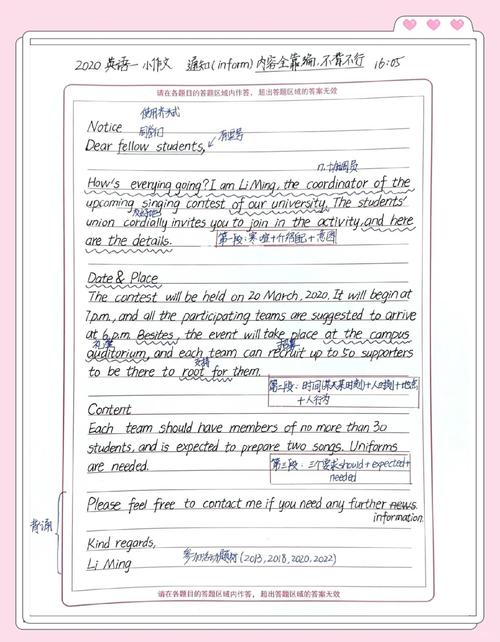 2020 英语一 小作文 通知(inform) 内容全靠编,不背不行 16:05
请在各题目的答题区域内作答，超出答题区域的答案无效
使用齐头式
Notice
同学们
有逗号
Dear fellow students,
n.协调员
How's everying going? I am Li Ming, the coordinator of the
upcoming singing contest of our university. The students'
友好地
union cordially invites you to join in the activity, and here
are the details.
第一段:寒暄+介绍自己+意图
Date & Place
The contest will be held on 20 March, 2020. It will begin at
7p.m., and all the participating teams are suggested to arrive
at 6 p.m. Besites, the event will take place at the campus
礼堂
招募
auditorium, and each team can recruit up to 50 supporters
支持
to be there to root for them.
第二段:时间(某天某时刻)+人+时刻+地点
+人行为
Content
Each team should have members of no more than 30
students, and is expected to prepare two songs. Uniforms
are needed.
第三段:三个要求should+expected+
needed
背诵
Please feel free to contact me if you need any further news
information.
Kind regards,
Li Ming
参加活动题材(2013,2018,2020,2022)
请在各题目的答题区域内作答，超出答题区域的答案无效